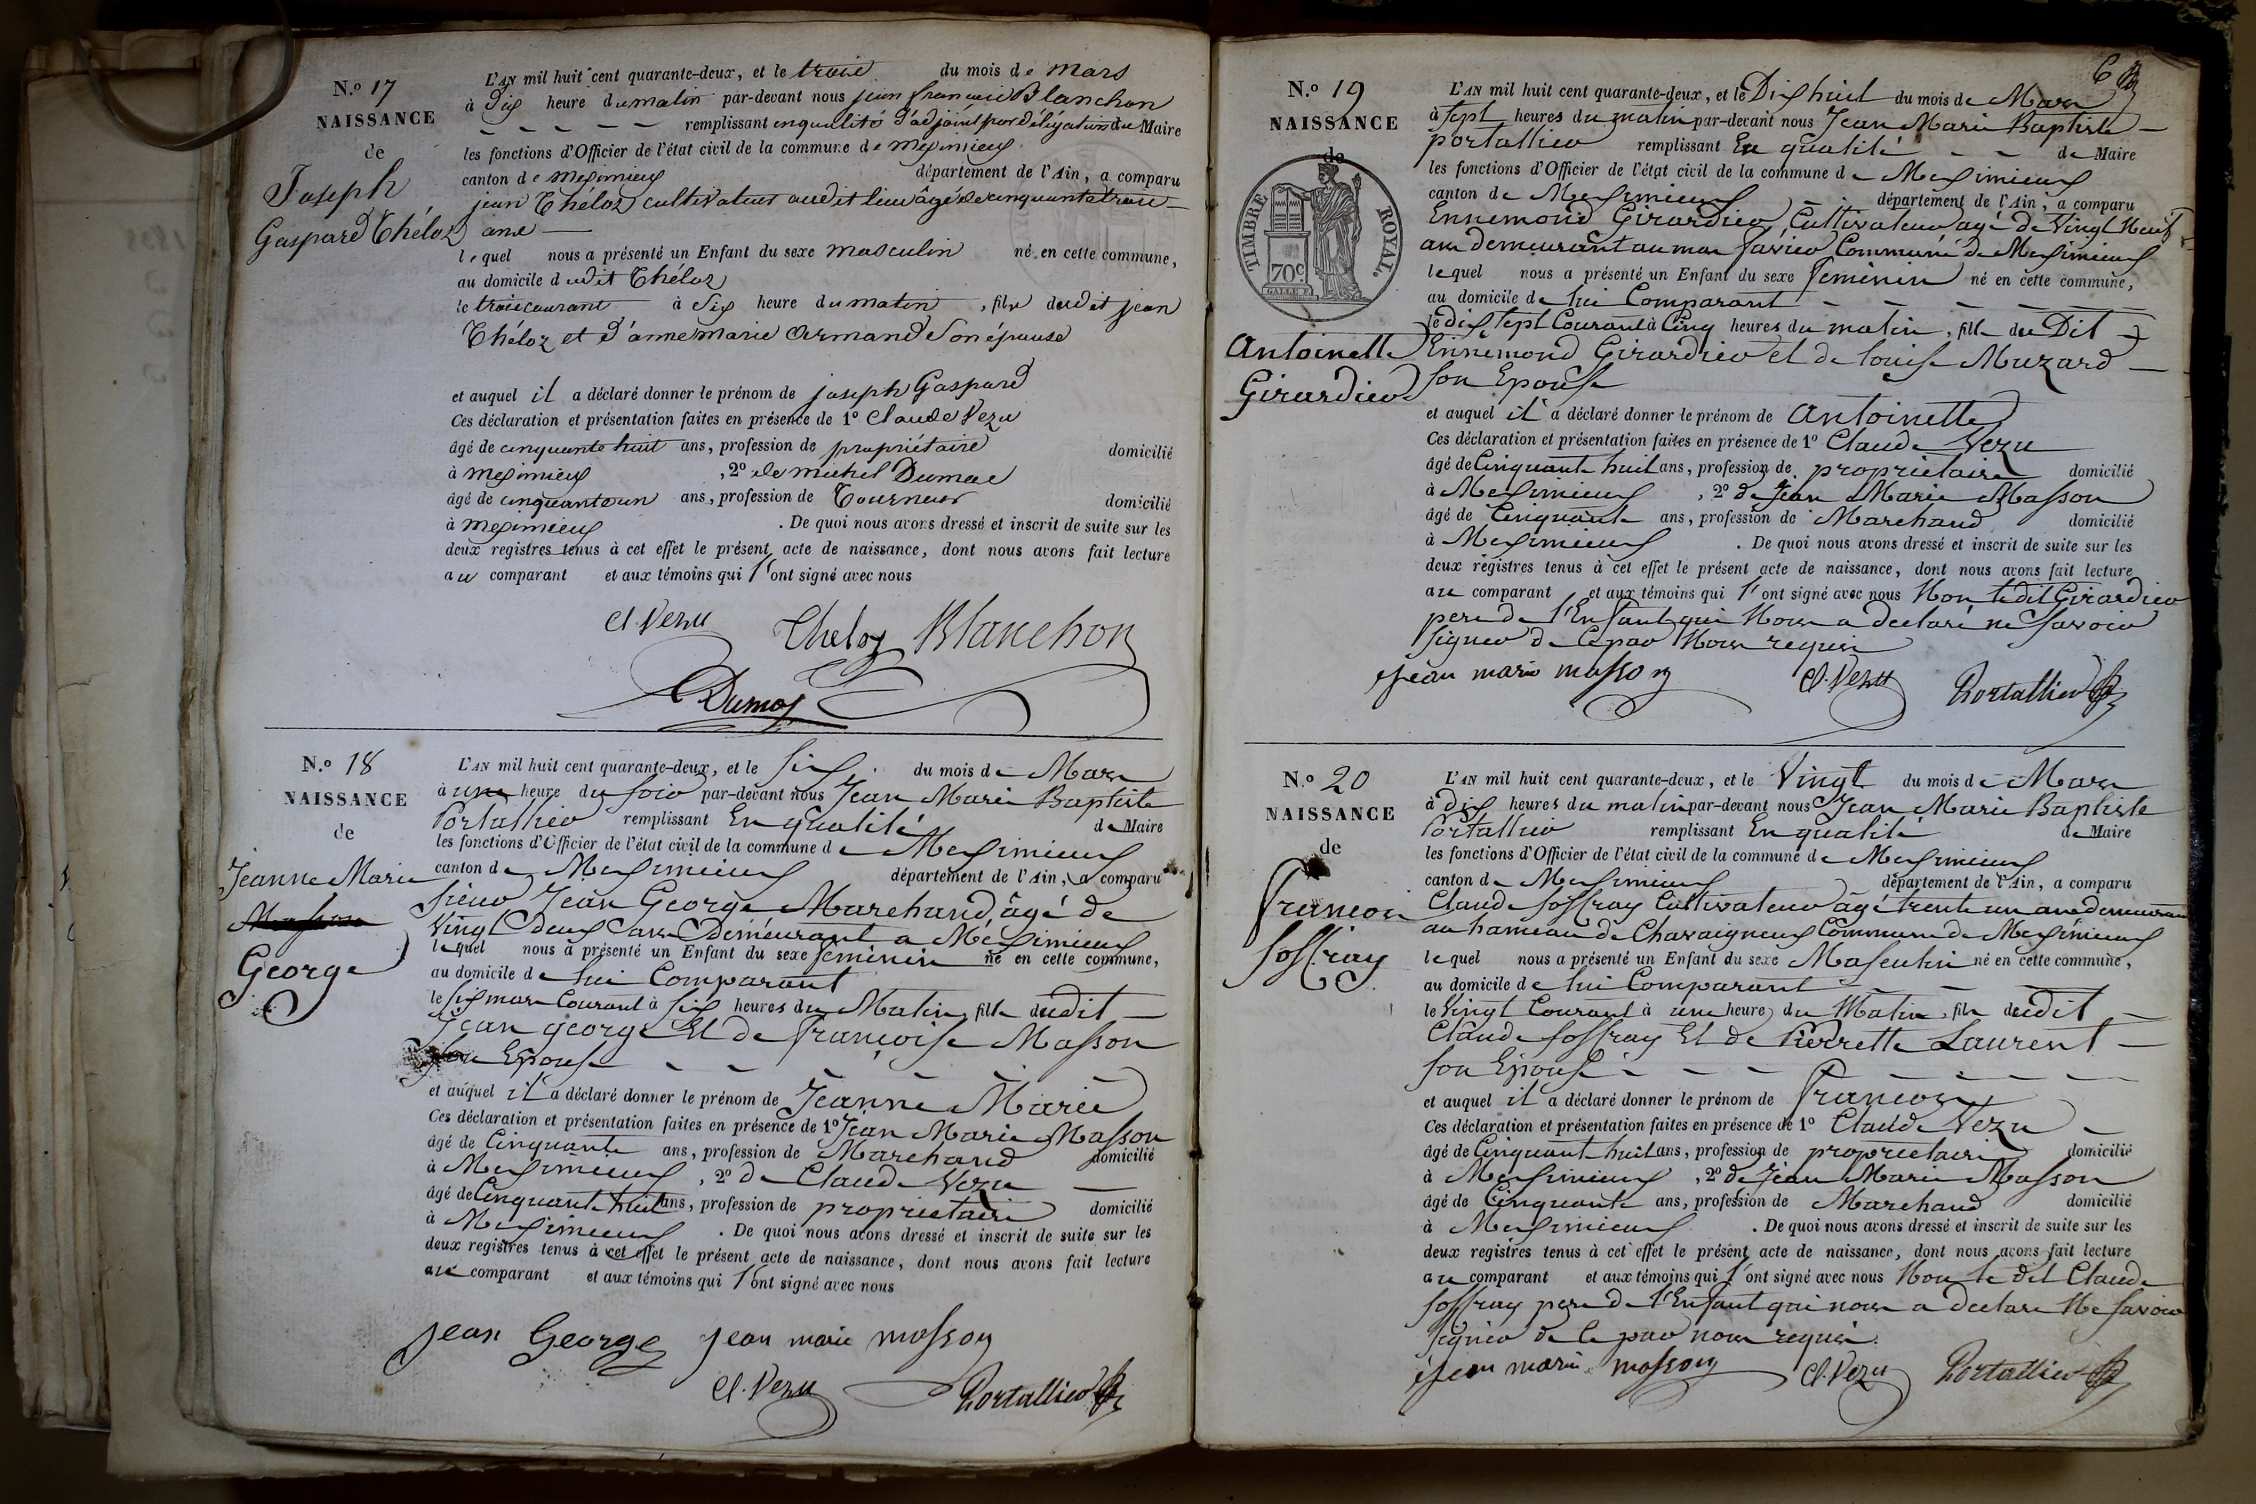 N.º 17
NAISSANCE
de
Joseph
Gaspard Théloz
L'AN mil huit cent quarante-deux, et le trois du mois de mars
à dix heure du matin par-devant nous jean françois Blanchon
remplissant en qualité d'adjoint par délégation du Maire
les fonctions d'Officier de l'état civil de la commune de meximieux
canton de meximieux département de l'Ain, a comparu
jean Théloz cultivateur audit lieu âgé de cinquante trois
ans
lequel nous a présenté un Enfant du sexe masculin né en cette commune,
au domicile dudit Théloz
le trois courant à six heure du matin, fils dudit jean
Théloz et d'anne marie Armand Son épouse
et auquel il a déclaré donner le prénom de joseph Gaspard
Ces déclaration et présentation faites en présence de 1º Claude Vezu
âgé de cinquante huit ans, profession de propriétaire domicilié
à meximieux, 2º de michel Dumas
âgé de cinquante un ans, profession de Tourneur domicilié
à meximieux. De quoi nous avons dressé et inscrit de suite sur les
deux registres tenus à cet effet le présent acte de naissance, dont nous avons fait lecture
au comparant et aux témoins qui l'ont signé avec nous
Cl. Vezu Theloz Blanchon
Dumas
N.º 18
NAISSANCE
de
Jeanne Marie
Masson
George
L'AN mil huit cent quarante-deux, et le Six du mois de Mars
à une heure du soir par-devant nous Jean Marie Baptiste
Portallier remplissant En qualité de Maire
les fonctions d'Officier de l'état civil de la commune de Meximieux
canton de Meximieux département de l'Ain, a comparu
Sieur Jean George Marchand, âgé de
Vingt Deux ans Demeurant a Méximieux
lequel nous a présenté un Enfant du sexe feminin né en cette commune,
au domicile de lui Comparant
le Six mars Courant à Six heures du Matin, fille dudit
Jean george Et de françoise Masson
son Epouse
et auquel il a déclaré donner le prénom de Jeanne Marie
Ces déclaration et présentation faites en présence de 1º Jean Marie Masson
âgé de Cinquante ans, profession de Marchand domicilié
à Meximieux, 2º de Claude Vezu
âgé de Cinquante huit ans, profession de proprietaire domicilié
à Meximieux. De quoi nous avons dressé et inscrit de suite sur les
deux registres tenus à cet effet le présent acte de naissance, dont nous avons fait lecture
au comparant et aux témoins qui l'ont signé avec nous
jean George jean marie masson
Cl. Vezu Portallier
6
N.º 19
NAISSANCE
de
TIMBRE ROYAL.
70c
Antoinette
Girardier
L'AN mil huit cent quarante-deux, et le Dix huit du mois de Mars
à sept heures du matin par-devant nous Jean Marie Baptiste
portallier remplissant En qualité de Maire
les fonctions d'Officier de l'état civil de la commune de Meximieux
canton de Meximieux département de l'Ain, a comparu
Ennemond Girardier Cultivateur agé de Vingt Neuf
ans demeurant au mas Commune de Meximieux
lequel nous a présenté un Enfant du sexe feminin né en cette commune,
au domicile de lui Comparant
le dix sept Courant à Cinq heures du matin, fille du Dit
Ennemond Girardier et de louise Muzard
son Epouse
et auquel il a déclaré donner le prénom de Antoinette
Ces déclaration et présentation faites en présence de 1º Claude Vezu
âgé de Cinquante huit ans, profession de proprietaire domicilié
à Meximieux, 2º de Jean Marie Masson
âgé de Cinquante ans, profession de Marchand domicilié
à Meximieux. De quoi nous avons dressé et inscrit de suite sur les
deux registres tenus à cet effet le présent acte de naissance, dont nous avons fait lecture
au comparant et aux témoins qui l'ont signé avec nous Non ledit Girardier
pere de l'Enfant qui Nous a declaré ne Savoir
signer de Ce par Nous requis
jean marie masson Cl. Vezu Portallier
N.º 20
NAISSANCE
de
françois
Soffray
L'AN mil huit cent quarante-deux, et le Vingt du mois de Mars
à dix heures du matin par-devant nous Jean Marie Baptiste
Portallier remplissant En qualité de Maire
les fonctions d'Officier de l'état civil de la commune de Meximieux
canton de Meximieux département de l'Ain, a comparu
Claude Soffray Cultivateur âgé trente un ans demeurant
au hameau de Chavaigneux Commune de Meximieux
lequel nous a présenté un Enfant du sexe Masculin né en cette commune,
au domicile de lui Comparant
le Vingt Courant à une heure du Matin, fils dudit
Claude Soffray Et de Pierrette Laurent
son Epouse
et auquel il a déclaré donner le prénom de françois
Ces déclaration et présentation faites en présence de 1º Claude Vezu
âgé de Cinquante huit ans, profession de proprietaire domicilié
à Meximieux, 2º de Jean Marie Masson
âgé de Cinquante ans, profession de Marchand domicilié
à Meximieux. De quoi nous avons dressé et inscrit de suite sur les
deux registres tenus à cet effet le présent acte de naissance, dont nous avons fait lecture
au comparant et aux témoins qui l'ont signé avec nous Non le dit Claude
Soffray pere de l'Enfant qui nous a declaré Ne Savoir
signer de Ce par nous requis.
jean marie masson Cl. Vezu Portallier